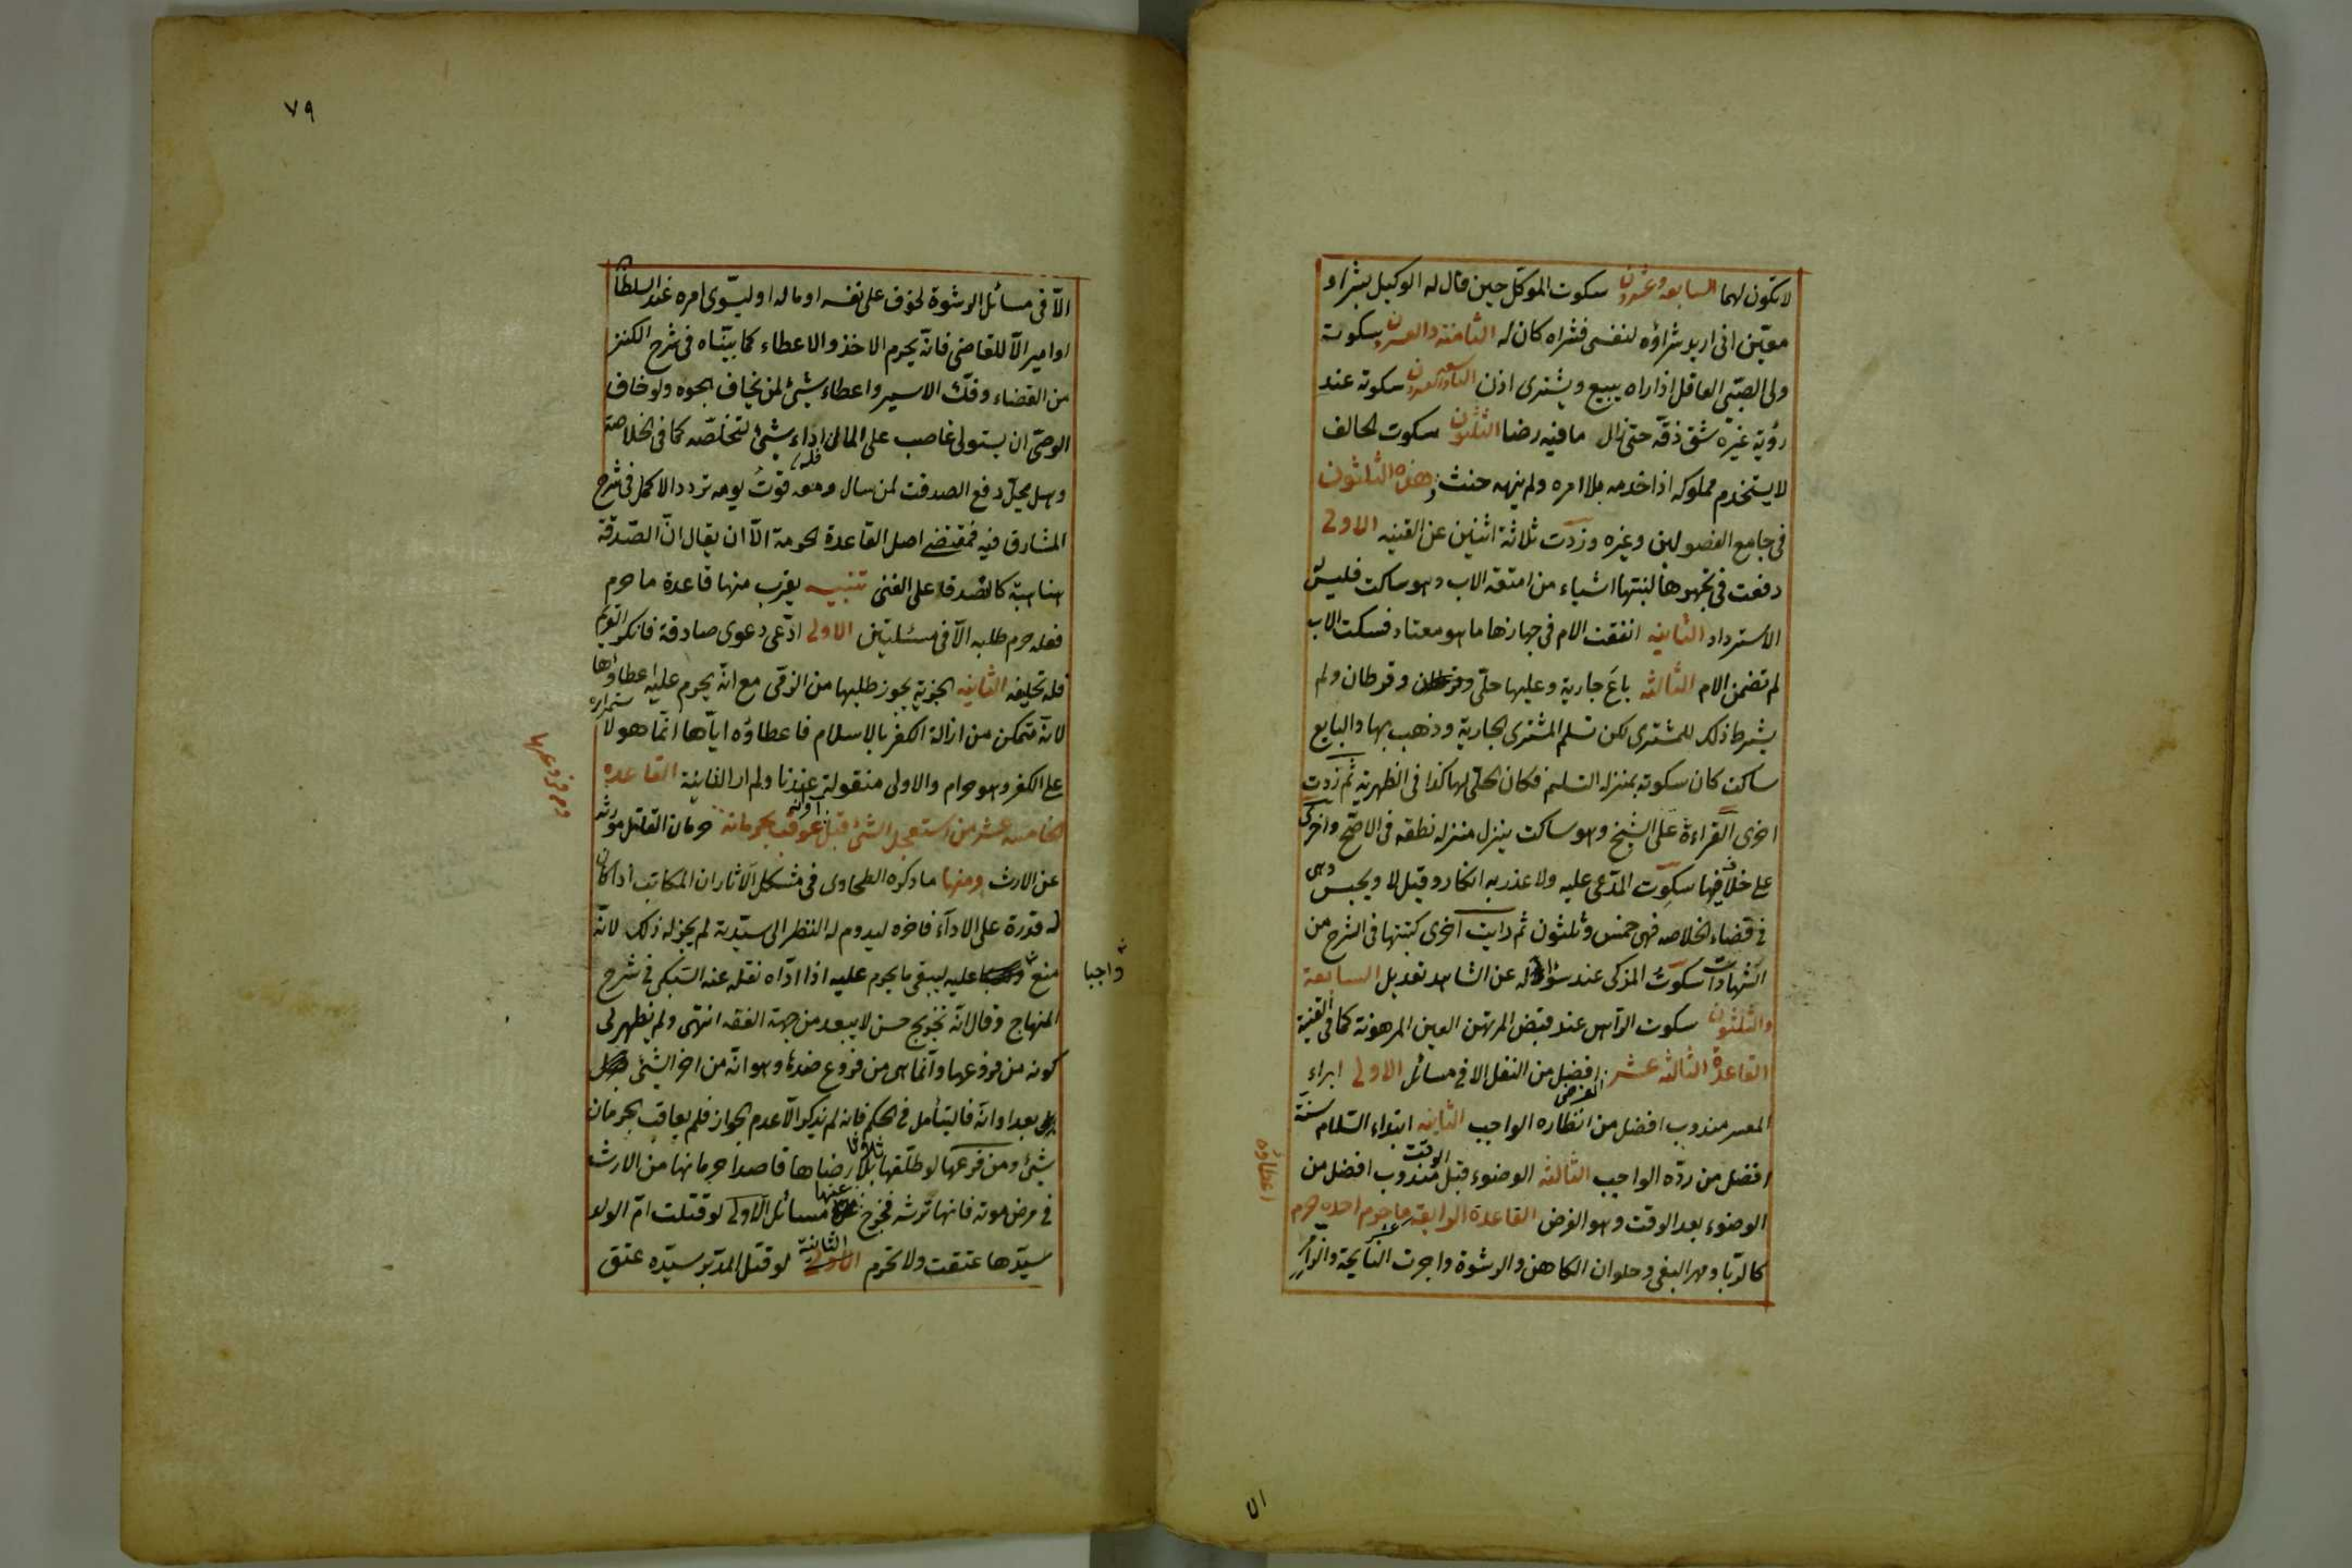 لا تكون لهما السابعة وعشرون سكوت الموكل حين قال له الوكيل بشراء
معين اني اريد شراؤه لنفسي فشراه كان له الثامنة والعشرون سكوت
ولي الصبي العاقل اذا راه يبيع ويشتري اذن التاسعة والعشرون سكوته عند
رؤية غيره شق زقه حتى سال ما فيه رضا الثلثون سكوت الحالف
لا يستخدم مملوكه اذا خدمه بلا امره ولم ينهه حنث هذه الثلثون
في جامع الفصولين وغيره وزدت ثلاثة اثنين عن القنيه الاولى
دفعت في تجهيزها لبنتها اشياء من امتعة الاب وهو ساكت فليس
الاسترداد الثانيه انفقت الام في جهازها ما هو معتاد فسكت الاب
لم تضمن الام الثالثه باع جارية وعليها حلي وقرطان ولم
يشرط ذلك للمشتري لكن تسلم المشتري الجارية وذهب بها والبايع
ساكت كان سكوته بمنزلة التسليم فكان الحلي لها كذا في الظهيرية ثم زدت
اخرى القراءة على الشيخ وهو ساكت ينزل منزلة نطقه في الاصح واخرى
على خلاف فيها سكوت المدعى عليه ولا عذر به انكار وقيل لا ويحبس وهي
في قضاء الخلاصه فهي خمس وثلثون ثم رايت اخرى كتبتها في الشرح من
الشهادات سكوت المزكي عند سؤاله عن الشاهد تعديل السابعة
والثلثون سكوت الراهن عند قبض المرتهن العين المرهونة كما في القنية
القاعدة الثالثه عشر الفرض افضل من النفل الا في مسائل الاولى ابراء
المعسر مندوب افضل من انظاره الواجب الثانيه ابتداء السلام سنة
افضل من رده الواجب الثالثه الوضوء قبل الوقت مندوب افضل من
الوضوء بعد الوقت وهو الفرض القاعدة الرابعة عشر ما حرم اخذه حرم
اعطاؤه
كالربا ومهر البغي وحلوان الكاهن والرشوة واجرت النايحة والزامر
٧٩
الا في مسائل الرشوة لخوف على نفسه او ماله او ليسوي امره عند السلطان
او امير الا للقاضي فانه يحرم الاخذ والاعطاء كما بيناه في شرح الكنز
من القضاء وفك الاسير واعطاء شيئ لمن يخاف هجوه ولو خاف
الوصي ان يستولي غاصب على المال فله اداء شيئ لتخلصه كما في الخلاصة
وهل يحل دفع الصدقت لمن سال ومعه قوت يومه تردد الاكمل في شرح
المشارق فيه فمقتضى اصل القاعدة الحرمة الا ان يقال ان الصدقة
هنا هبة كالتصدق على الغني تنبيه يقرب منها قاعدة ما حرم
فعله حرم طلبه الا في مسئلتين الاولى ادعى دعوى صادقة فانكر الغريم
فله تحليفه الثانيه الجزية يجوز طلبها من الذمي مع انه يحرم عليه اعطاؤها
لانه متمكن من ازالة الكفر بالاسلام فاعطاؤه اياها انما هو لاستمراره
على الكفر وهو حرام والاولى منقولة عندنا ولم ار الثانية القاعدة
الخامسه عشر من استعجل الشئ قبل اوانه عوقب بحرمانه حرمان القاتل مورثه
ومن فروعها
عن الارث ومنها ما ذكره الطحاوي في مشكل الآثار ان المكاتب اذا كان
له قدرة على الاداء فاخره ليدوم له النظر الى سيدته لم يجز له ذلك لانه
منع واجبا عليه ليبقى ما يحرم عليه اذا اداه نقله عنه السبكي في شرح
المنهاج وقال انه تخريج حسن لا يبعد من جهة الفقه انتهى ولم يظهر لي
كونه من فروعها وانما هي من فروع ضدها وهو انه من اخر الشيئ
بعد اوانه فاليتأمل في الحكم فانه لم يذكر الا عدم الجواز فلم يعاقب بحرمان
شيئ ومن فروعها لو طلقها ثلاثا بلا رضاها قاصدا حرمانها من الارث
في مرض موته فانها ترثه فخرج عنها مسائل الاولى لو قتلت ام الولد
سيدها عتقت ولا تحرم الثانية لو قتل المدبر سيده عتق